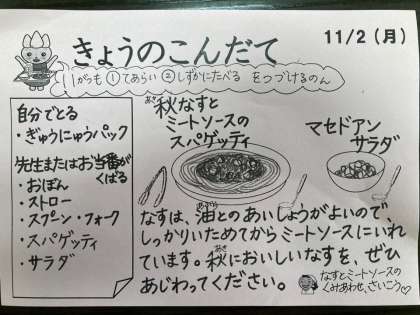 きょうのこんだて
11/2（月）
11がつも ①てあらい ②しずかにたべる をつづけるのん
自分でとる
・ぎゅうにゅうパック
先生またはお当番が
くばる
・おぼん
・ストロー
・スプーン・フォーク
・スパゲッティ
・サラダ
あき
秋なすと
ミートソースの
スパゲッティ
マセドアン
サラダ
あぶら
なすは、油とのあいしょうがよいので、
しっかりいためてからミートソースにいれ
あき
ています。秋においしいなすを、ぜひ
あじわってください。
なすとミートソースの
くみあわせ、さいこう♡